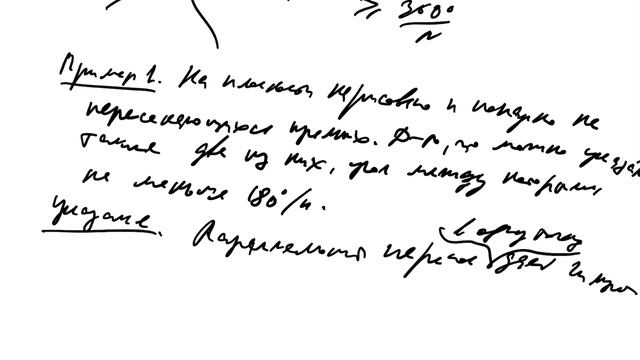 ≥ 360° / n
Пример 1. На плоскости нарисовано n попарно не
пересекающихся прямых. Д-ть, что можно указать
такие две из них, угол между которыми
не меньше 180°/n.
Указание. перенос в одну точку